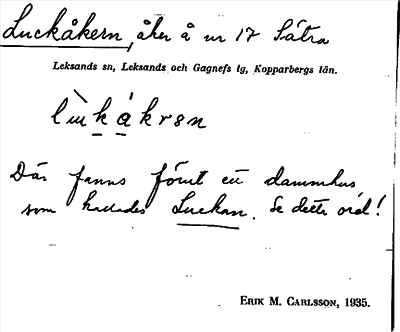 Luckåkern, åker å nr 17 Sätra
Leksands sn, Leksands och Gagnefs tg, Kopparbergs län.
lùkákrən
Där fanns förut ett dammhus
som kallades Luckan. Se detta ord!
ERIK M. CARLSSON, 1935.